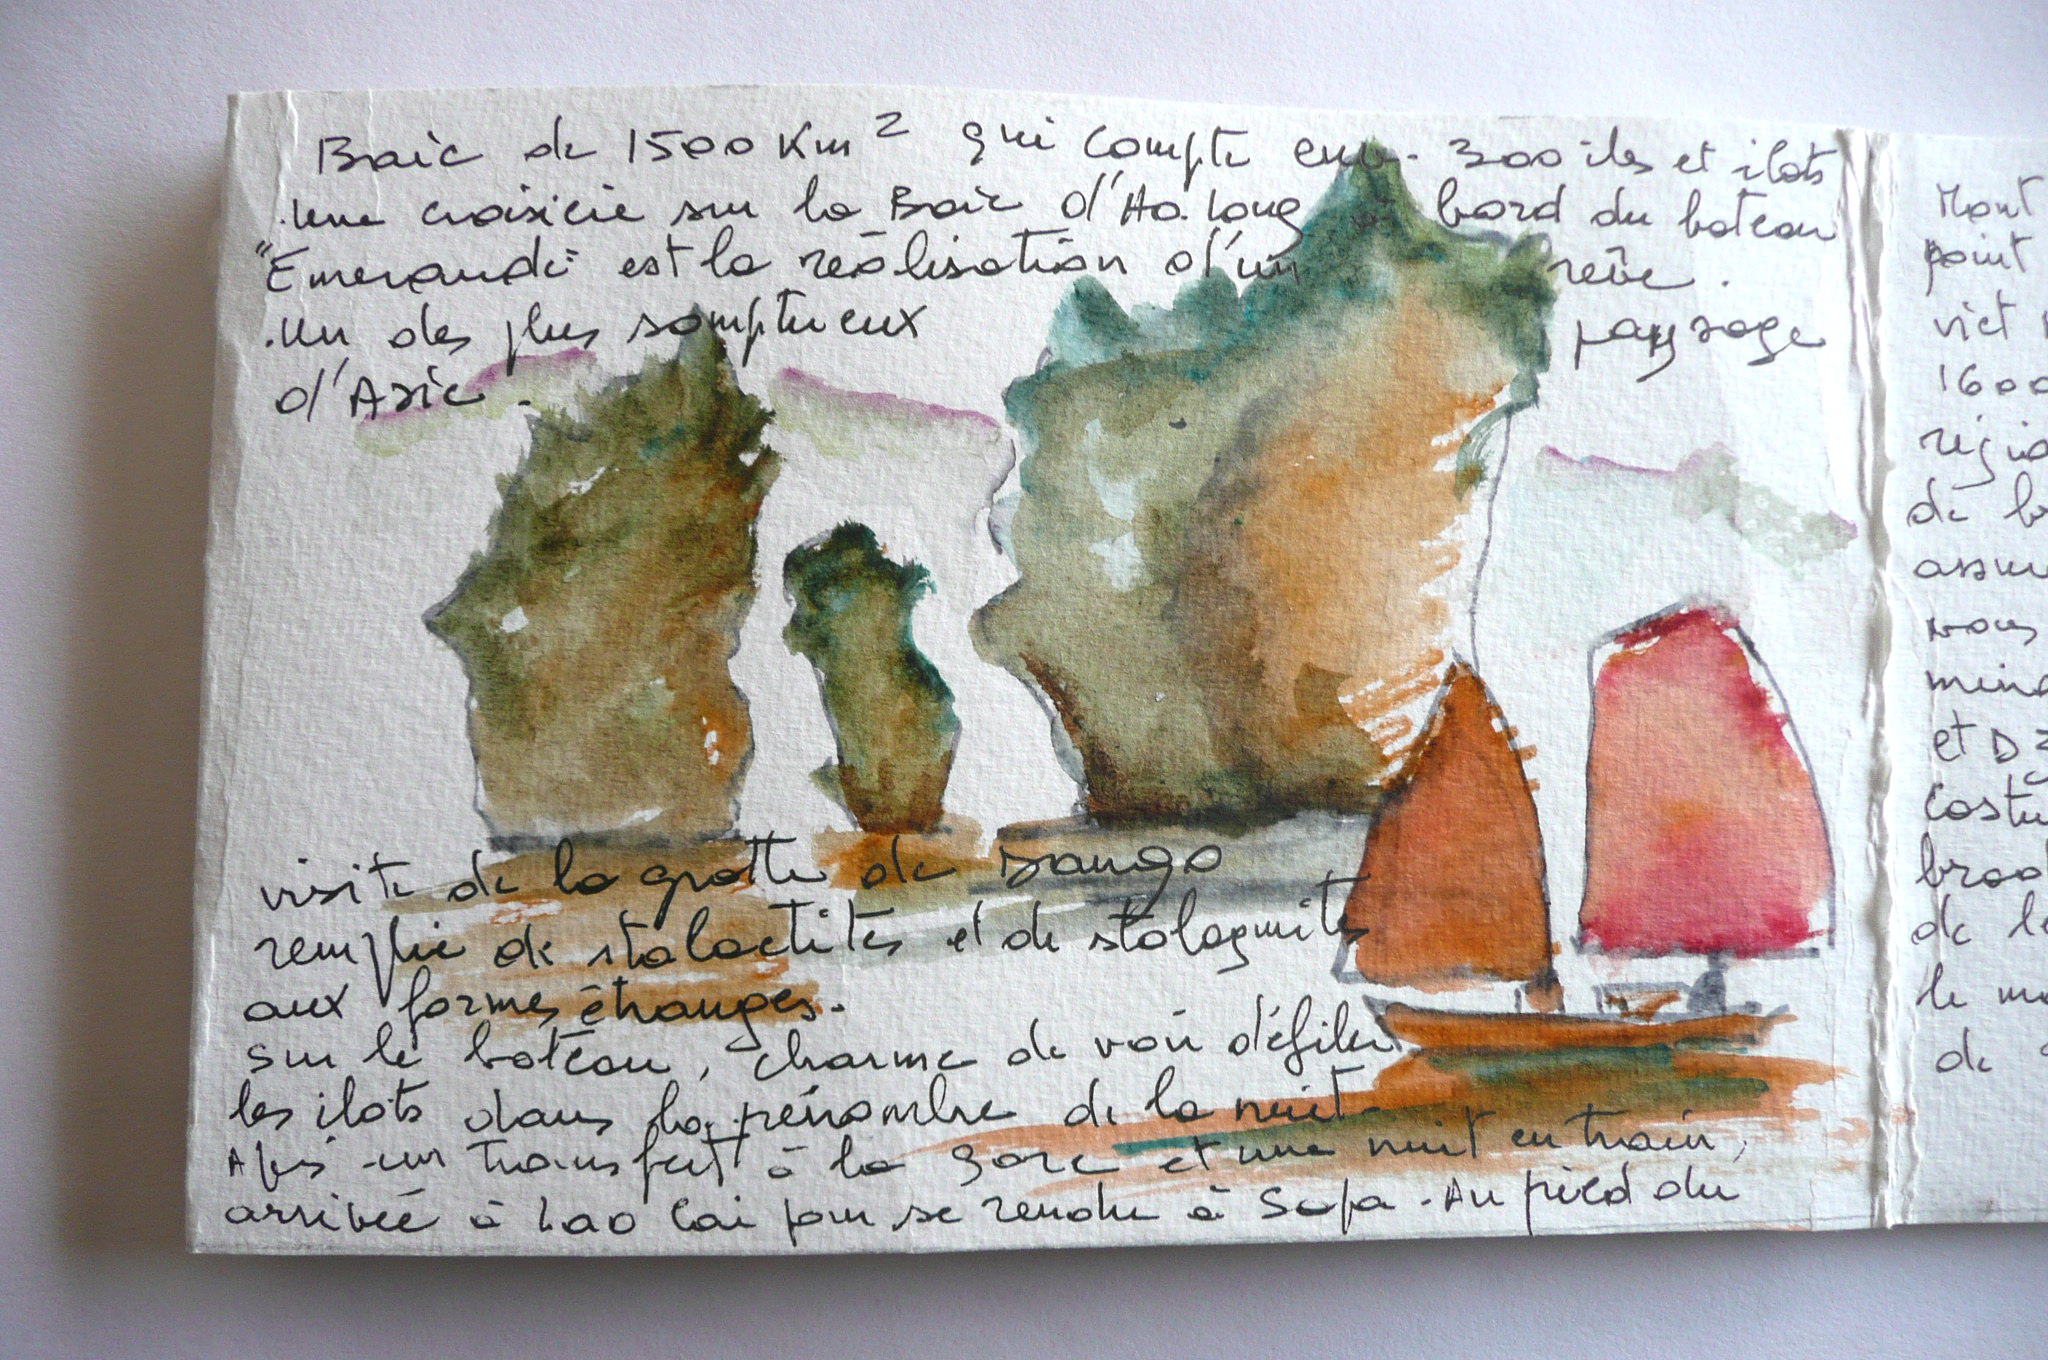 Baie de 1500 Km² qui compte env. 300 iles et ilots
. une croisière sur la Baie d'Ha.Long à bord du bateau
"Emeraude" est la réalisation d'un rêve .
. un des plus somptueux paysage
d'Asie .
visite de la grotte de
remplie de stalactites et de stalagmites
aux formes étranges.
Sur le bateau, charme de voir défiler
les ilots dans la pénombre de la nuit.
Après un transfert à la gare et une nuit en train,
arrivée à Lao Cai pour se rendre à Sapa . Au pied du
Mont
point
viet
1600
régio
de
assu
nous
mino
et
costu
de
le
de